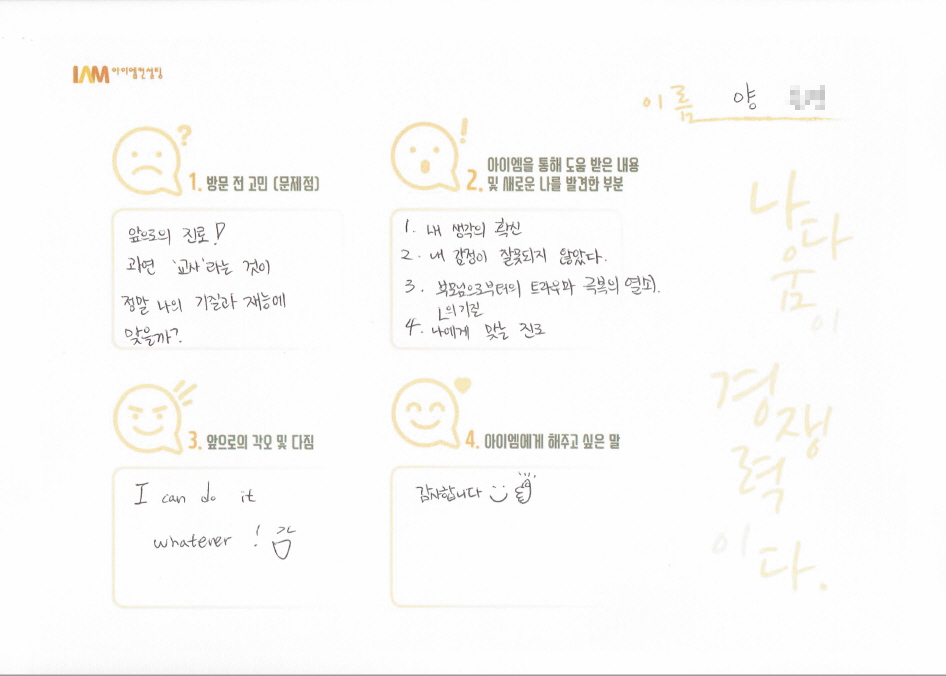 IAM 아이엠컨설팅
이름 양
1. 방문 전 고민 (문제점)
앞으로의 진로!
과연 '교사'라는 것이
정말 나의 기질과 재능에
맞을까?
2. 아이엠을 통해 도움 받은 내용
및 새로운 나를 발견한 부분
1. 내 생각의 확신
2. 내 감정이 잘못되지 않았다.
3. 부모님으로부터의 트라우마 극복의 열쇠.
의 기질
4. 나에게 맞는 진로
3. 앞으로의 각오 및 다짐
I can do it
whatever !
4. 아이엠에게 해주고 싶은 말
감사합니다
나다움이
경쟁력이다.